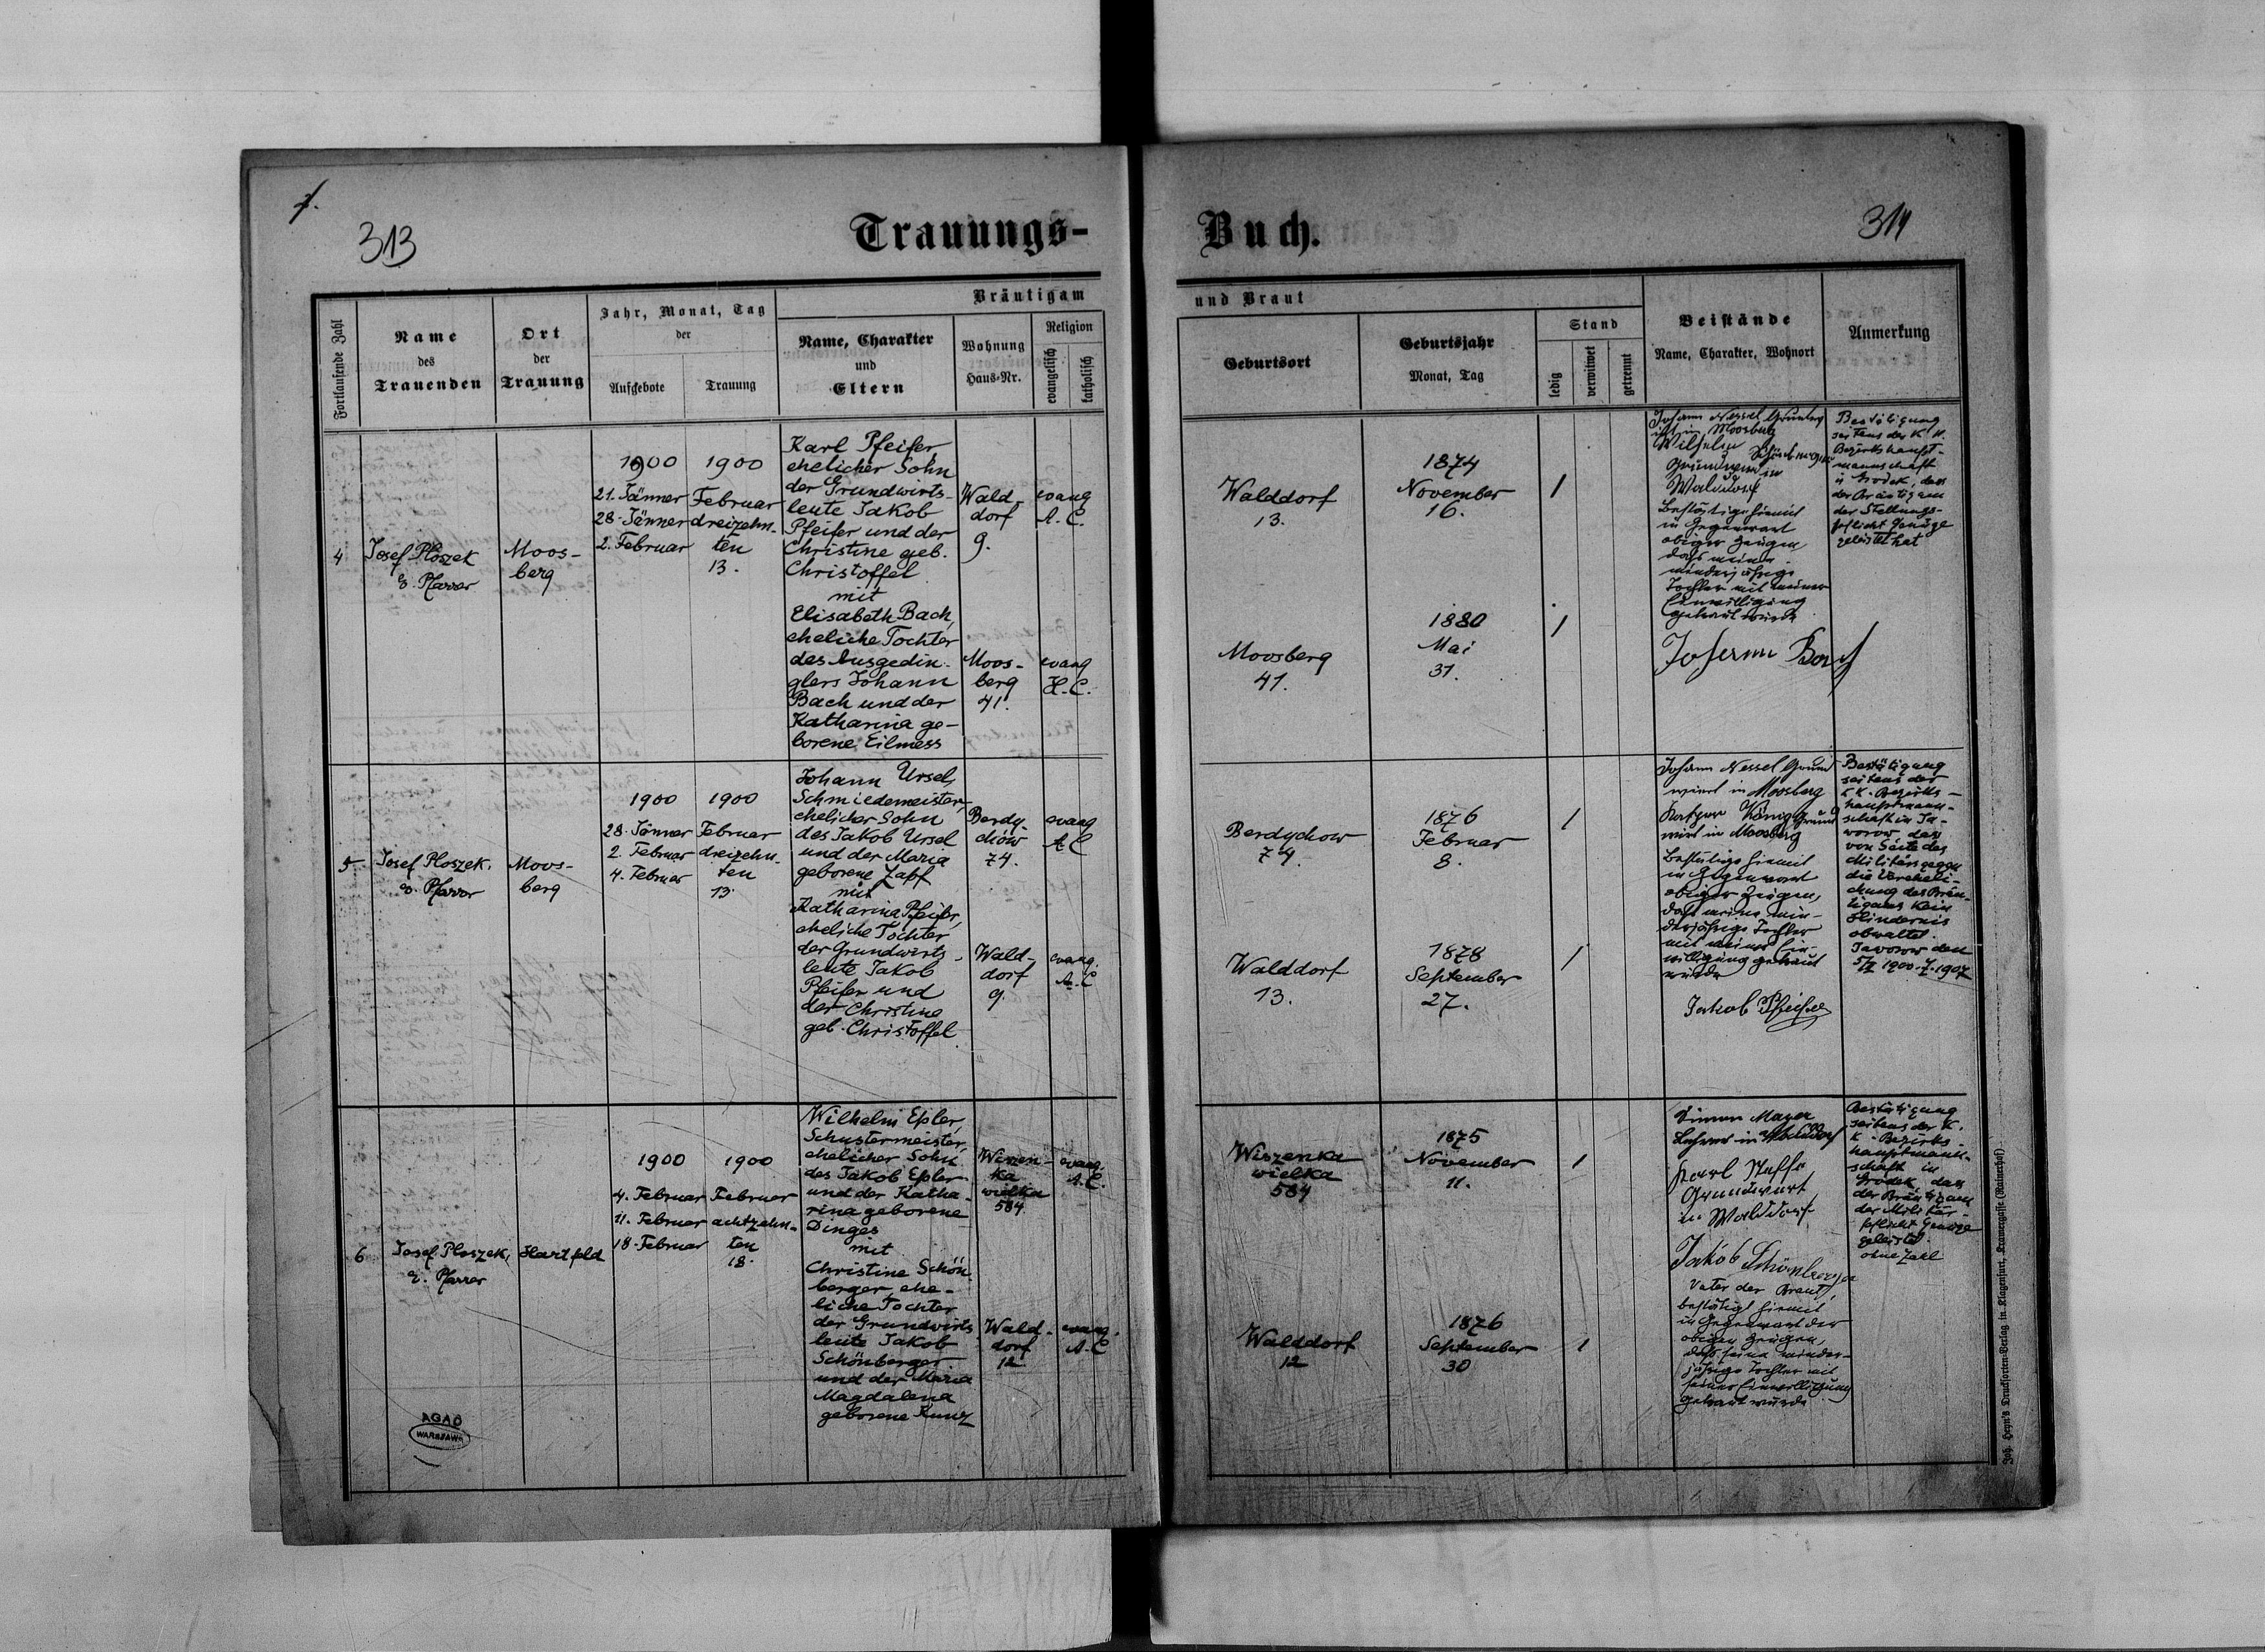 1.
313
Trauungs-
Buch.
314
Fortlaufende Zahl
Name
des
Trauenden
Ort
der
Trauung
Jahr, Monat, Tag
der
Aufgebote
Trauung
Bräutigam
und Braut
Name, Charakter
und
Eltern
Wohnung
Haus-Nr.
Religion
evangelisch
katholisch
Geburtsort
Geburtsjahr
Monat, Tag
Stand
ledig
verwitwet
getrennt
Beistände
Name, Charakter, Wohnort
Anmerkung
4
Josef Ploszek
e. Pfarrer
Moos-
berg
1900
21. Jänner
28. Jänner
2. Februar
1900
Februar
dreizehn-
ten
13.
Karl Pfeifer,
ehelicher Sohn
der Grundwirts-
leute Jakob
Pfeifer und der
Christine geb.
Christoffel
mit
Elisabeth Bach,
eheliche Tochter
des Ausgedin-
glers Johann
Bach und der
Katharina ge-
borene Eilmess
Wald-
dorf
9.
evang
A. C.
Moos-
berg
41.
evang
H. C.
Walddorf
13.
1874
November
16.
/
Moosberg
41.
1880
Mai
31.
/
Johann Nessel Grundw
irt in Moosberg
Wilhelm Schönberger
Grundwirt in
Walddorf
Bestätige hiemit
in Gegenwart
obiger Zeugen
daß meine
minderjährige
Tochter mit meiner
Einwilligung
getraut wurde
Johann Bach
Bestätigung
seitens der K. K.
Bezirkshaupt-
mannschaft
in Grodek, dass
der Bräutigam
der Stellungs-
pflicht Genüge
geleistet hat
5
Josef Ploszek.
e. Pfarrer
Moos-
berg
1900
28. Jänner
2. Februar
4. Februar
1900
Februar
dreizehn-
ten
13.
Johann Ursel,
Schmiedemeister,
ehelicher Sohn
des Jakob Ursel
und der Maria
geborene Zapf
mit
Katharina Pfeifer,
eheliche Tochter
der Grundwirts-
leute Jakob
Pfeifer und
der Christine
geb. Christoffel
Berdy-
chow
74.
evang
A C
Wald-
dorf
9.
evang.
A. C
Berdychow
74.
1876
Februar
8.
/
Walddorf
13.
1878
September
27.
/
Johann Nessel Grund
wirt in Moosberg
König Grund
wirt in Moosberg
Bestätige hiemit
in Gegenwart
obiger Zeugen,
daß meine min-
derjährige Tochter
mit meiner Ein-
willigung getraut
wurde
Jakob Pfeifer
Bestätigung
seitens der
K K. Bezirks-
hauptmann-
schaft in Ja-
worow dass
von Seite des
Militärs gegen
die Vereheli-
chung des Bräu-
tigams kein
Hindernis
obwaltet.
Jaworow den
6
Josef Ploszek,
e. Pfarrer
Hartfeld
1900
4. Februar
11. Februar
18. Februar
1900
Februar
achtzehn-
ten
18.
Wilhelm Epler,
Schustermeister,
ehelicher Sohn
des Jakob Epler
und der Katha-
rina geborene
Dinges
mit
Christine Schön-
berger, ehe-
liche Tochter
der Grundwirts-
leute Jakob
Schönberger
und der Maria
Magdalena
geborene Kunz
Wiszen-
ka
wielka
584
evang.
A. C.
Wald-
dorf
12
evang.
A. C
Wiszenka
wielka
584
1875
November
11.
/
Walddorf
12
1876
September
30
/
Simon Mayer
Lehrer in Walddorf
Karl
Grundwirt
in Walddorf
Jakob Schönberger
Vater der Braut,
bestätigt hiemit
in Gegenwart der
obigen Zeugen,
daß seine minder-
jährige Tochter mit
seiner Einwilligung
getraut wurde
Bestätigung
seitens der K.
K. Bezirks-
hauptmann-
schaft in
Grodek, dass
der Bräutigam
der Militär-
pflicht Genüge
geleistet.
ohne Zahl
AGAD
WARSZAWA
Joh. Heyn's Drucksorten-Verlag in Klagenfurt, Kramergasse (Rainerhof)